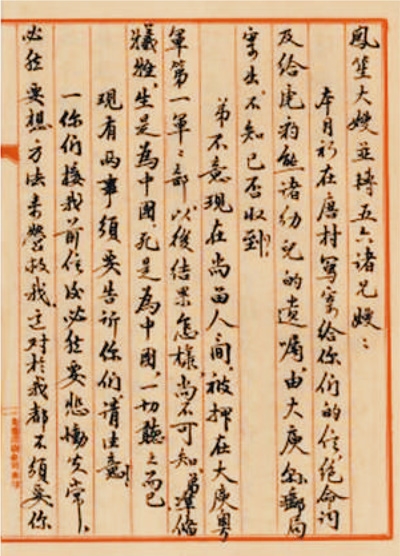 鳳笙大嫂並轉五六諸兄嫂：
本月初在唐村寫寄給你們的信、絕命詞
及給虎豹熊諸幼兒的遺囑，由大庾縣郵局
寄出，不知已否收到？
弟不意現在尚留人間，被押在大庾粵
軍第一軍々部，以後結果怎樣，尚不可知，弟準備
犧牲，生是為中國，死是為中國，一切聽之而已
現有兩事須要告訴你們，請注意！
一你們接我前信後必然要悲慟失常，
必然要想方法来營救我，這對於我都不須要你